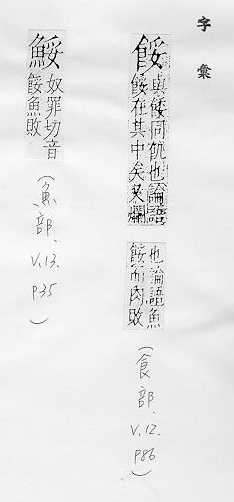 字彙
餒
與餧同飢也論語
餒在其中矣又爛
也論語魚
餒而肉敗
(食部. V.12. P86)
鮾
奴罪切音
餒魚敗
(魚部. V.13. P35)